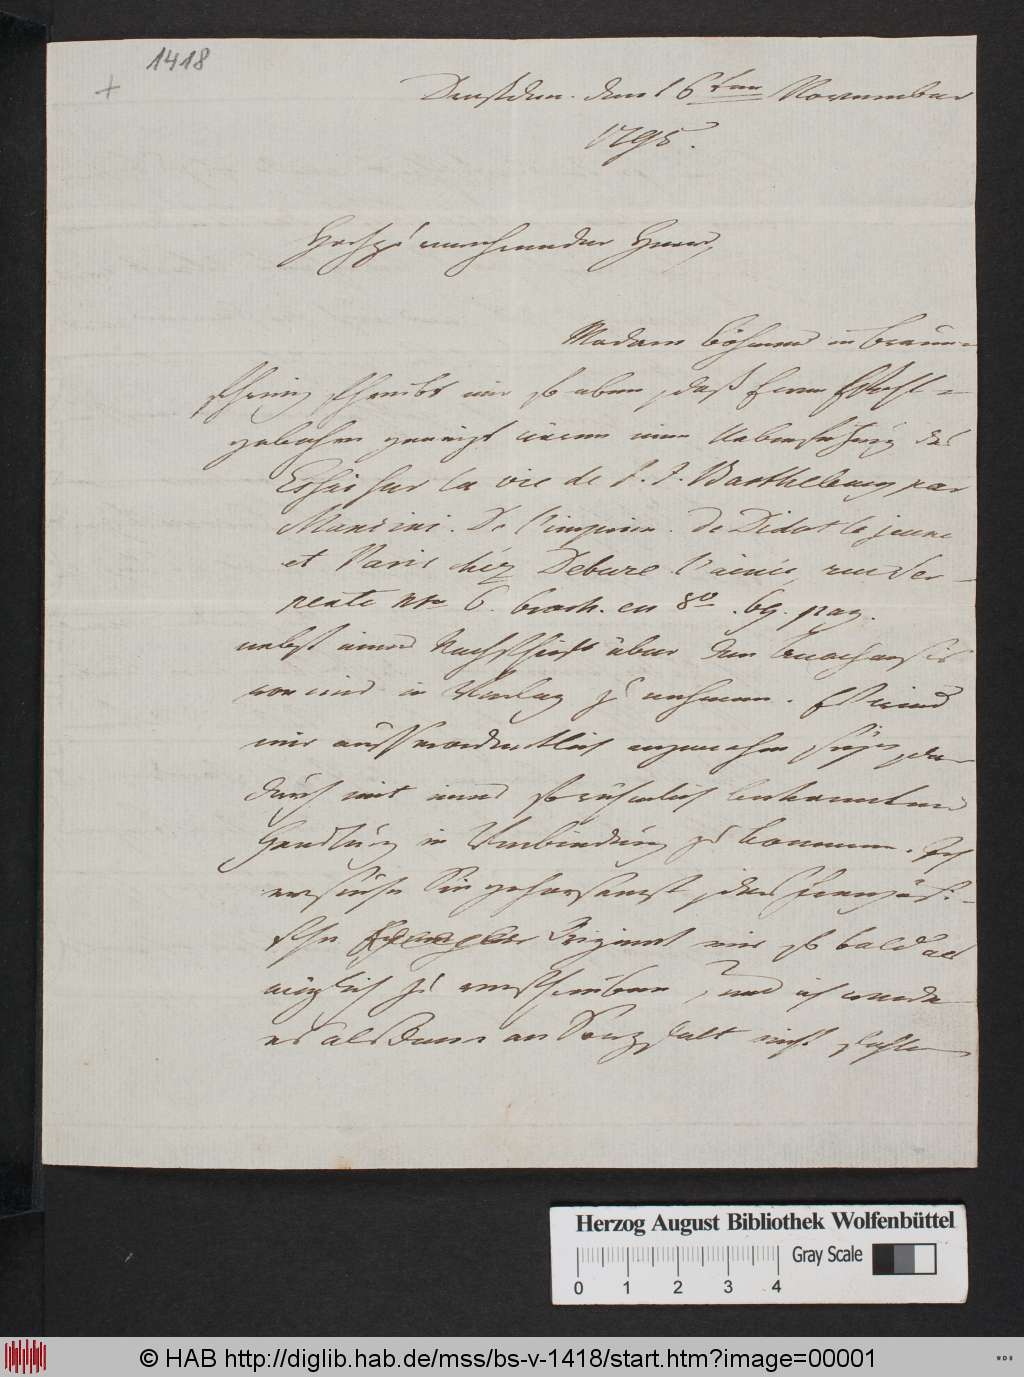 1418
Dresden. den 16ten November
1795.
Hochzuverehrender Herr,
Madam Böhmer in Braun-
schweig schreibt mir so eben, daß Herr
geneigt wären eine Uebersetzung des
Essai sur la vie de J. J. Barthelemy par
Mancini. De l'imprim. de Didot le jeune
et Paris chéz Debure l'ainé, rue Ser-
pente No 6. broch. en 8o. 69. pag.
nebst einer Nachschrift über den Anacharsis
von mir in Verlag zu nehmen. Es wird
mir ausserordentlich angenehm seyn, da-
durch mit einer so rühmlich bekannten
Handlung in Verbindung zu kommen. Ich
ersuche Sie gehorsamst, das Französi-
sche Original mir so bald als
möglich zu verschreiben, und ich werde
es alsdann an Sorgfalt nicht fehlen
Herzog August Bibliothek Wolfenbüttel
Gray Scale
0 1 2 3 4
© HAB http://diglib.hab.de/mss/bs-v-1418/start.htm?image=00001